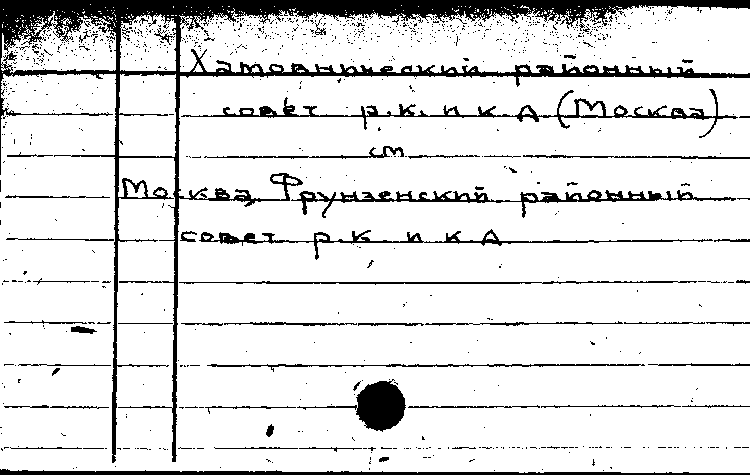 Хамовнический районный
совет р.к. и к А (Москва)
см
Москва, Фрунзенский районный
совет р.к. и к.А